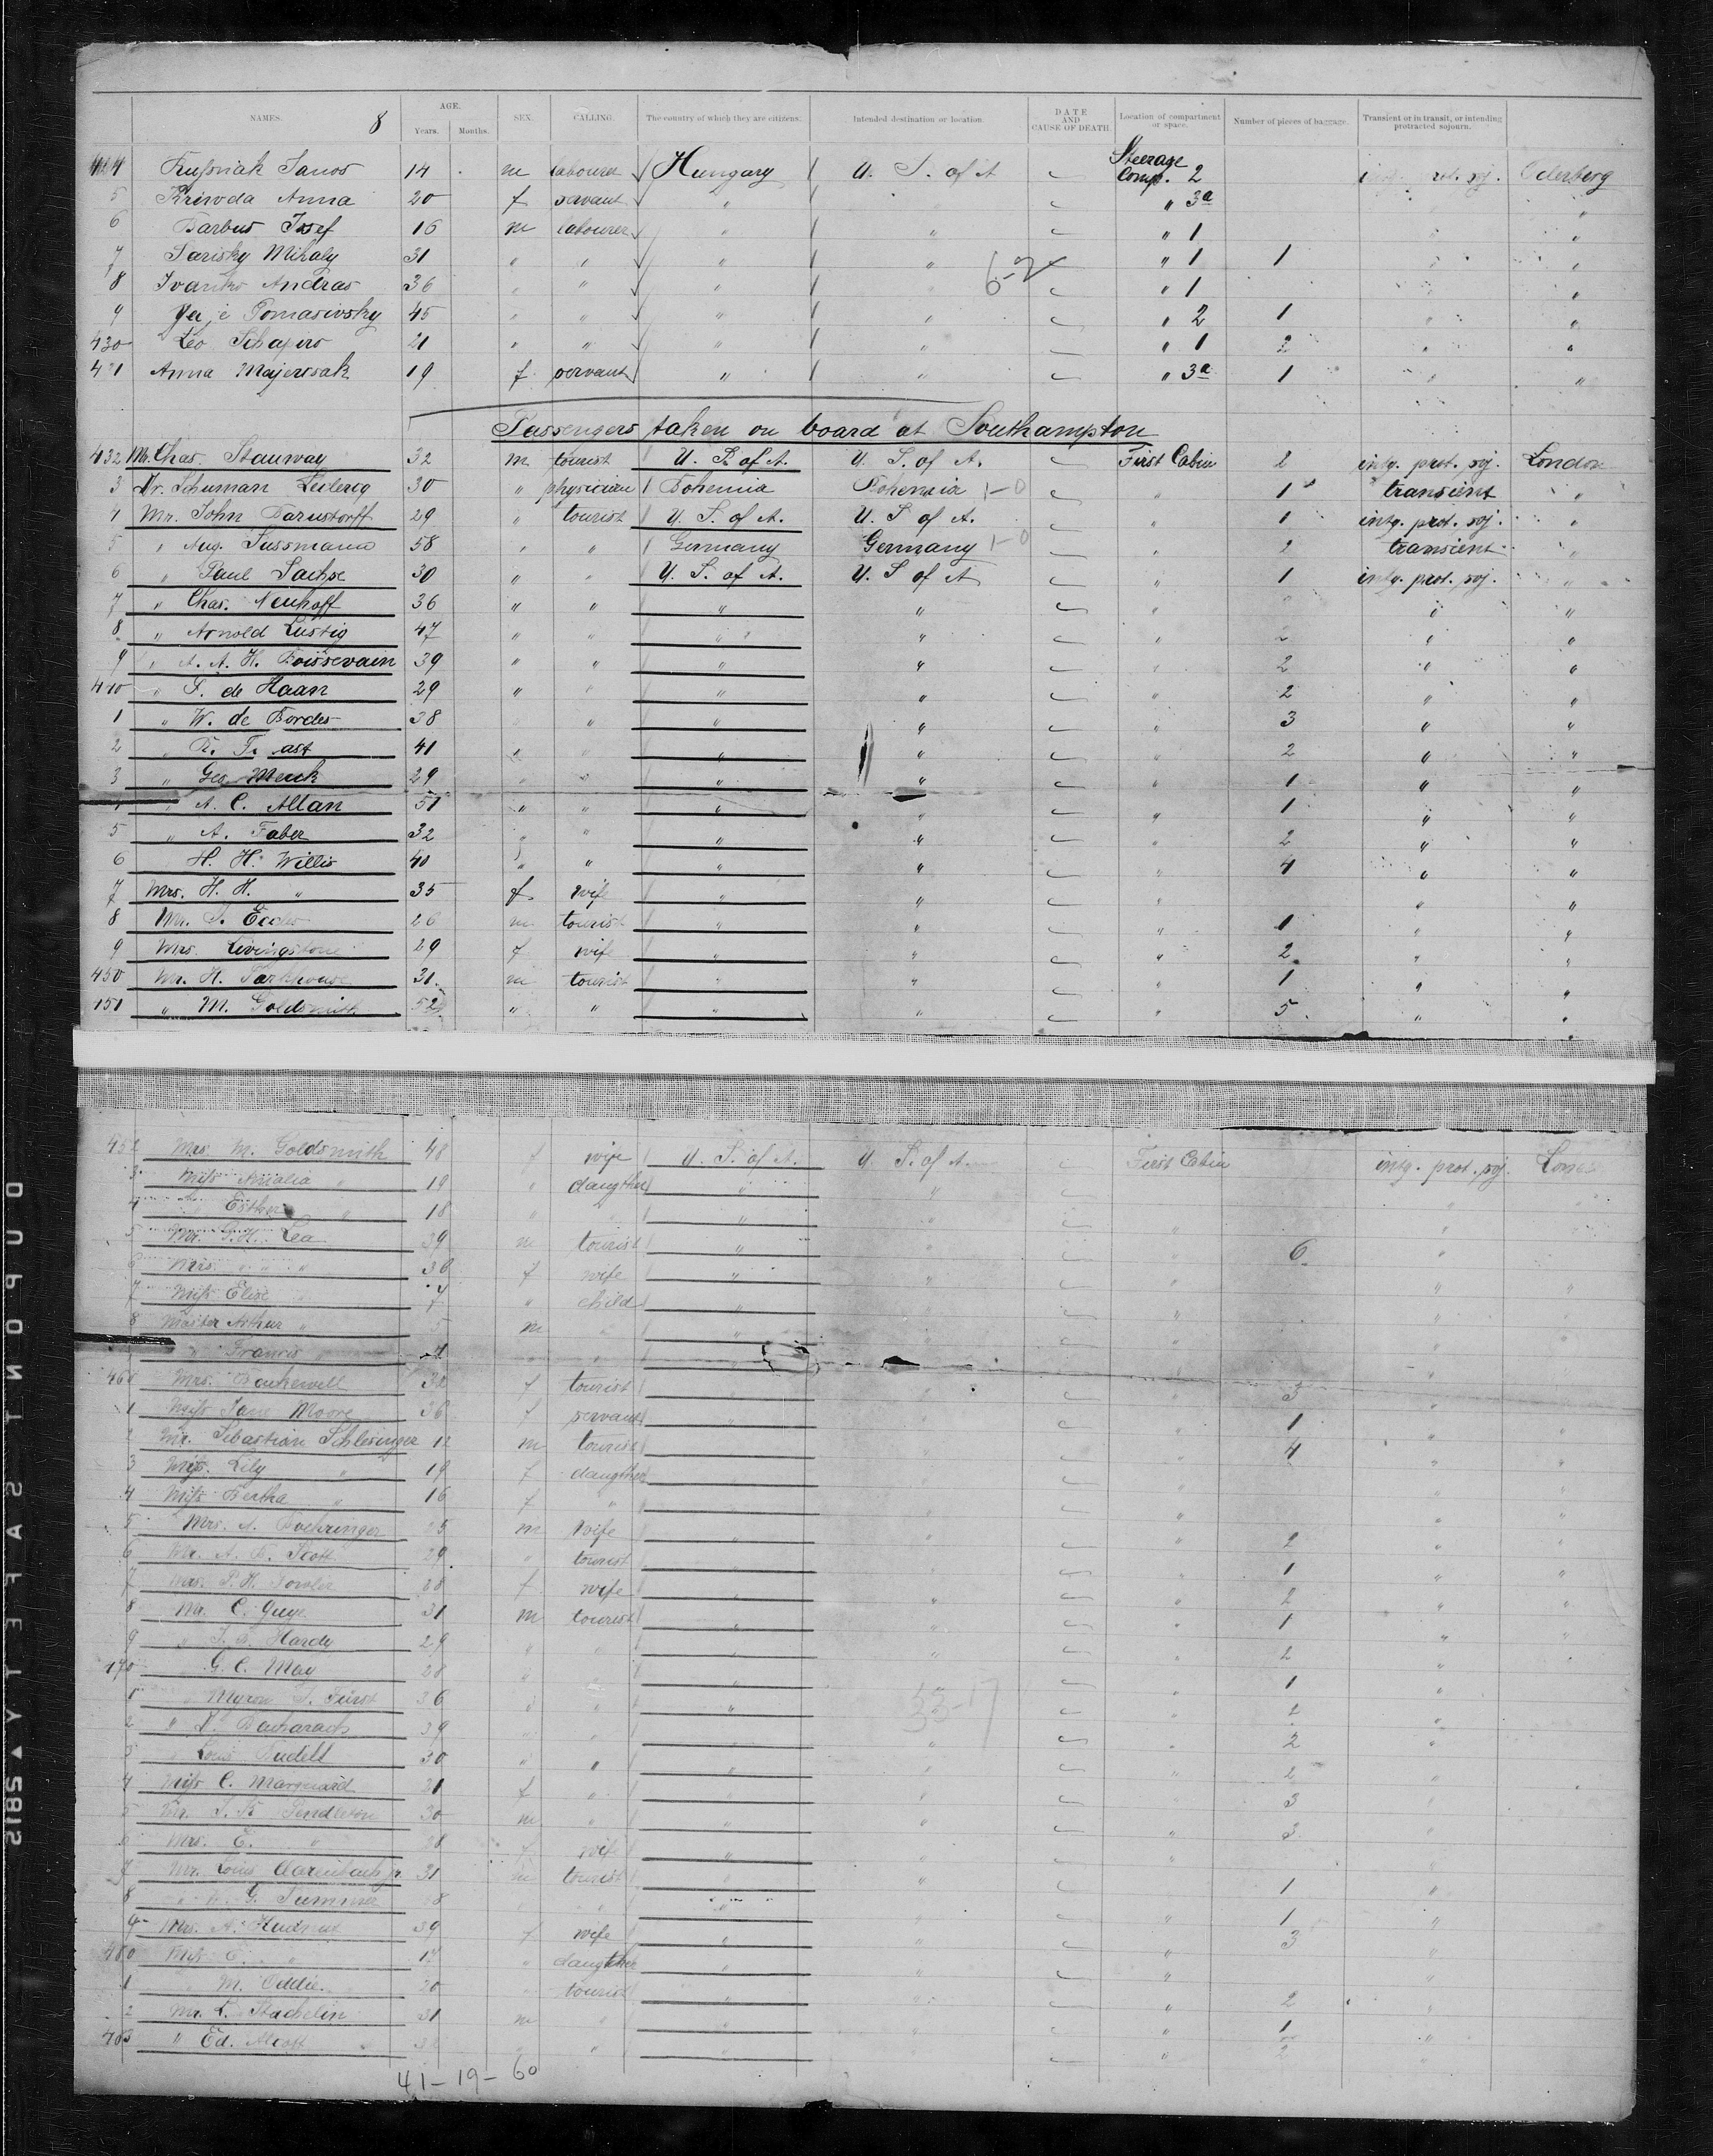 NAMES. 8 AGE. Years. Months. SEX. CALLING. The country of which they are citizens. Intended destination or location. DATE AND CAUSE OF DEATH. Location of compartment or space. Number of pieces of baggage. Transient or in transit, or intending protracted sojourn.
Janos 14 m labourer Hungary U. S. of A Steerage Comp. 2 Oderberg
5 Kriwda Anna 20 f servant " " 3a "
6 Barbus Josef 16 m labourer " " " 1 "
7 Sarisky Mihaly 31 " " " " " 1 1 "
8 Ivanko Andras 36 " " " " 1 "
9 Tomasivsky 45 " " " " " 2 1 " "
430 Leo Schapiro 21 " " " " " 1 2 " "
Anna Majerssak 19 f servant " " " 3a 1 " "
Passengers taken on board at Southampton
432 Mr. Chas. Stanway 32 m tourist U. S. of A. U. S. of A. First Cabin 2 intg. prot. soj. London
3 Dr. Schuman Leclercq 30 " physician Bohemia Bohemia 1-0 " 1 transient "
4 Mr. John Barnstorff 29 " tourist U. S. of A. U. S of A. " 1 intg. prot. soj. "
5 " Aug. Sussmann 58 " " Germany Germany 1-0 " 2 transient "
6 " Paul Sachse 30 " " U. S. of A. U. S of A " 1 intg. prot. soj. "
7 " Chas. Neuhoff 36 " " " " " " "
8 " Arnold Lustig 47 " " " " " 2 " "
9 " A. A. H. Boissevain 39 " " " " " 2 " "
440 " S. de Haan 29 " " " " " 2 " "
1 " W. de Bordes 38 " " " " 3 " "
2 " R. 41 " " " " " 2 " "
3 " Geo Menk 29 " " " " " 1 " "
A. C. Allan 51 " " " " " 1 " "
5 " A. Faber 32 " " " " " 2 " "
6 H. H. Willis 40 " " " " " 4 " "
7 Mrs. H. H. " 35 f wife " " " " "
8 Mr. S. Eccles 26 m tourist " " " 1 " "
9 Mrs. Livingstone 29 f wife " " " 2 " "
450 Mr. H. Parkhouse 31 m tourist " " " 1 " "
451 " M. Goldsmith 52 " " " " " 5 " "
452 Mrs. M. Goldsmith 48 f wife U. S. of A. U. S. of A. First Cabin intg. prot. soj.
3 Miss Amalia " 19 " daugther " "
4 " Esther " 18 " " " " "
5 Mr. Lea 39 m tourist " " 6 "
6 Mrs. " " 36 f wife " " " " "
7 Miss Elise 7 " child " " " " "
8 Master Arthur " m " " " "
" Francis " " " "
460 Mrs. Bakewell f tourist " " 3 "
1 Miss Jane Moore 36 f servant " " 1 " "
2 Mr. Sebastian Schlesinger m tourist " " 4 " "
3 Miss. Lily " 19 f daugther " " " "
4 Miss Bertha " 16 f " " " " " "
5 Mrs. A. Boehringer m Wife " " " 2 " "
6 Mr. A. Scott 29 " tourist " " 1 " "
7 Mrs. S. H. Fowler 28 f wife " " " 2 " "
8 Mr. C. Guye 31 m tourist " " " 1 " "
9 " Hardy 29 " " " " " 2 "
470 G. C. May 28 " " " 1 "
1 " Myron S. Fürst 36 " " " 33-17 " 2 "
2 " Bacharach 39 " " " " 2 "
3 " Louis 30 " " " " " 2 "
4 Miss C. Marquard 21 f " " " 3 "
5 Mr. Pendleton 30 m " " " " 3 "
6 Mrs. E. " 28 f wife " " " "
7 Mr. Louis jr. 31 m tourist " " 1 "
8 " G. Summer " " 1 "
9 Mrs. A. Hudnut 39 f wife " " " 3 "
480 Miss " 17 " daugther " " " "
1 M. Oddie 20 tourist " " " 2 "
2 Mr. L. Stachelin 31 m " " " " 1 "
" Ed. " " " " 2
41-19-60
DUPONT SAFETY ▲ S812